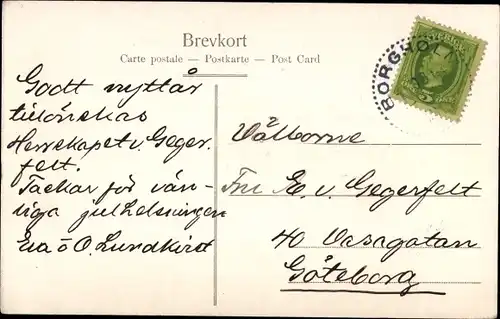 Brevkort
Carte postale — Postkarte — Post Card
SVERIGE
BORGHOL
5
Godt nytt år
tillönskas
Herrskapet v. Geger-
felt.
Tackar för vän-
liga julhelsningen
Eva o O. Lundkvist
Välborne
Fru E. v. Gegerfelt
40 Vasagatan
Göteborg